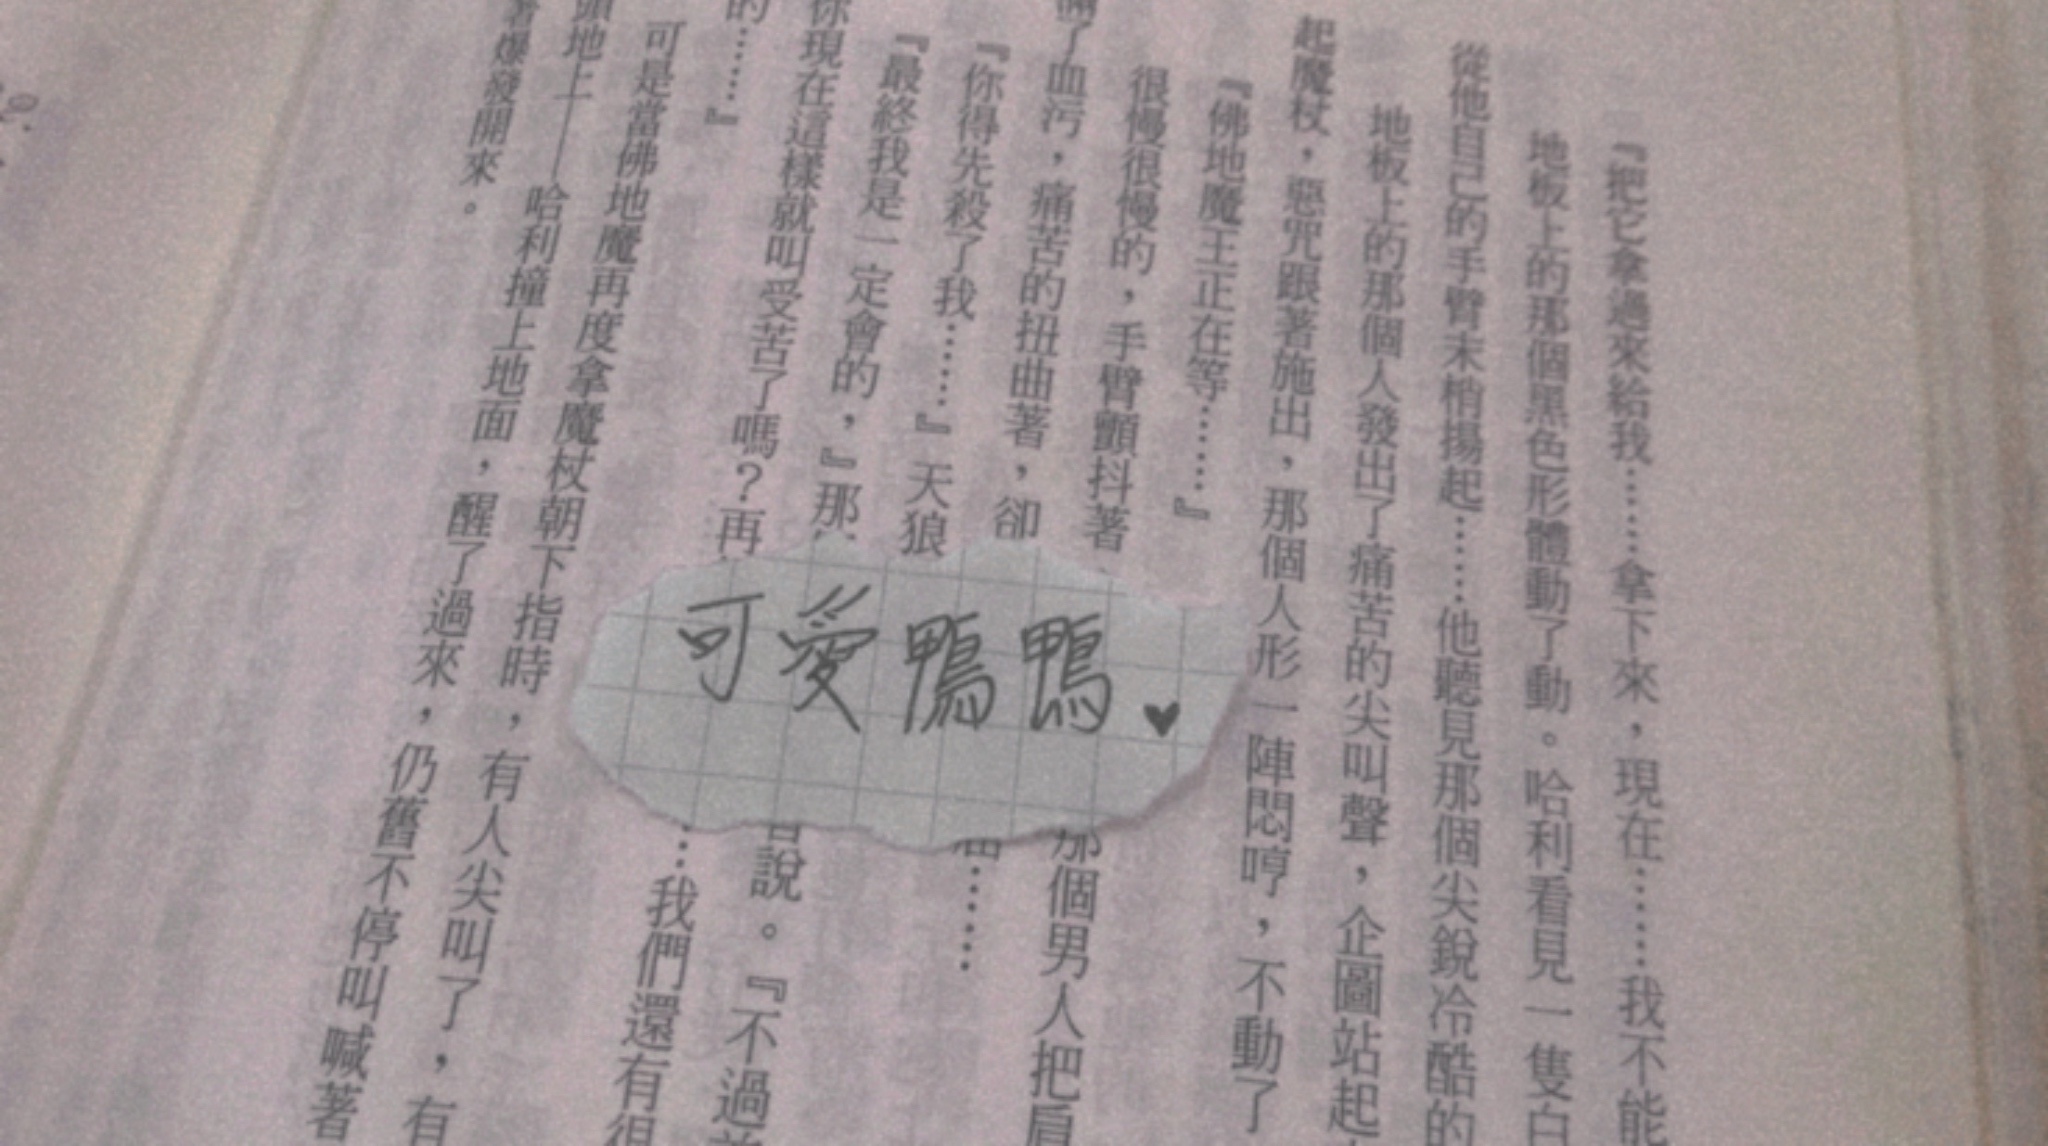 『把它拿過來給我……拿下來，現在……我不能
地板上的那個黑色形體動了動。哈利看見一隻白
從他自己的手臂末梢揚起……他聽見那個尖銳冷酷的
地板上的那個人發出了痛苦的尖叫聲，企圖站起
起魔杖，惡咒跟著施出，那個人形一陣悶哼，不動了
『佛地魔王正在等……』
很慢很慢的，手臂顫抖著
了血污，痛苦的扭曲著，卻
那個男人把肩
『你得先殺了我……』天狼
『最終我是一定會的，』那
說。『不過
你現在這樣就叫受苦了嗎？再
…我們還有很
的……』
可是當佛地魔再度拿魔杖朝下指時，有人尖叫了，有
頭地上——哈利撞上地面，醒了過來，仍舊不停叫喊著
著爆發開來。
可愛鴨鴨.♥